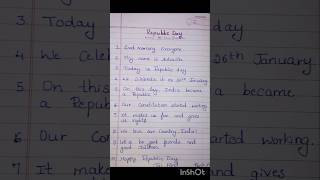 3 Today
4 We Celeb
5 On this
a Repub
6 Our Cons
7 It makes
Republic Day
1. Good morning everyone
2. My name is
3. Today is Republic day
4. We Celebrate it on 26th January
5. On this day, India became
a Republic
6. Our Constitution started working.
7. It makes us fair and gives
us rights
8. We love our Country India!
9. Let's be good friends and
good children
10. Happy Republic Day
Jai Hind
26th January
a became
started working.
InShOt